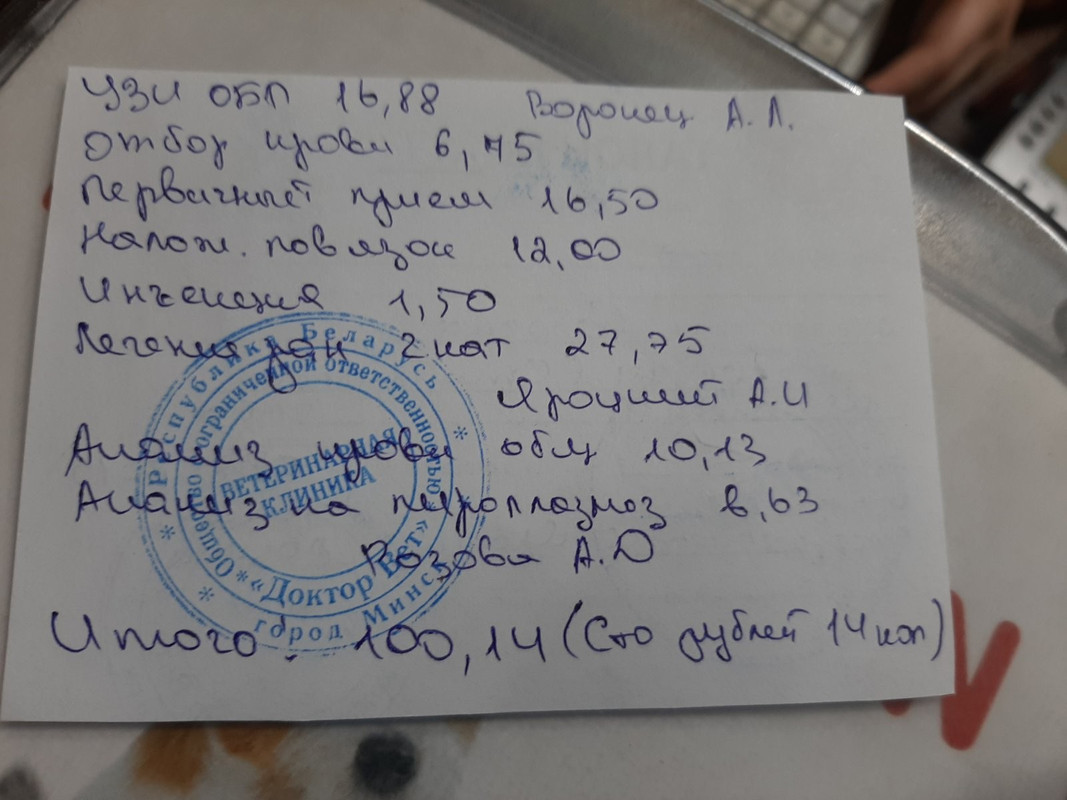 УЗИ ОБП 16,88 Воронец А.Л.
Отбор крови 6,75
Первичный прием 16,50
Налож. повязок 12,00
Инъекция 1,50
Лечение ран 2 кат 27,75
Яроцкий А.И
Анализ крови общ 10,13
Анализ на пироплазмоз 8,63
Розова А.Ю
Итого: 100,14 (Сто рублей 14 коп)
Республика Беларусь
город Минск
Общество с ограниченной ответственностью
«Доктор Вет»
ВЕТЕРИНАРНАЯ
КЛИНИКА